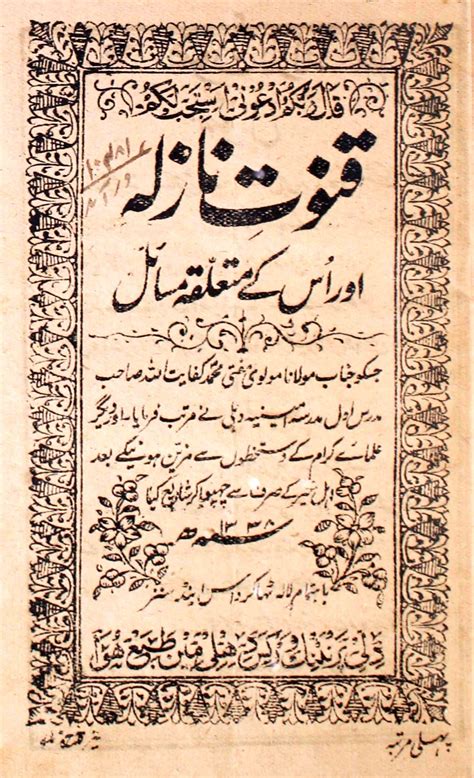 قال ربکم ادعونی استجب لکم
قنوتِ نازلہ
اور اُس کے متعلقہ مسائل
جسکو جناب مولانا مولوی مفتی محمد کفایت اللہ صاحب
مدرس اول مدرسہ امینیہ دہلی نے مرتب فرمایا اور دیگر
علمائے کرام کے دستخطوں سے مزین ہونیکے بعد
اہل خیر کے صرف سے چھپوا کر شایع کیا
۱۳۳۸ھ
باہتمام لالہ ٹھاکر داس اینڈ سنز
دلی پرنٹنگ ورکس دہلی میں طبع ہوا
پہلی مرتبہ